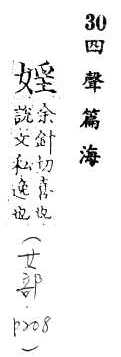 30四聲篇海
婬
余針切喜也
說文私逸也
(女部 p208)